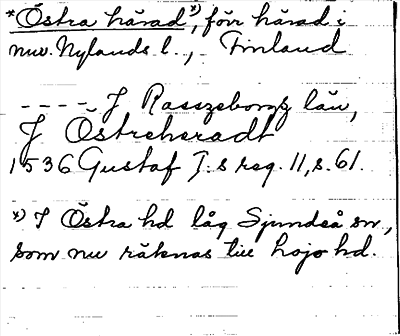 *Östra härad,*) förr härad i
nuv. Nylands l., Finland
---- J Raszeborgz län,
J Östreheradt
1536 Gustaf I:s reg. 11, s. 61.
*) I Östra hd låg Sjundså sn,
som nu räknas till Lojo hd.